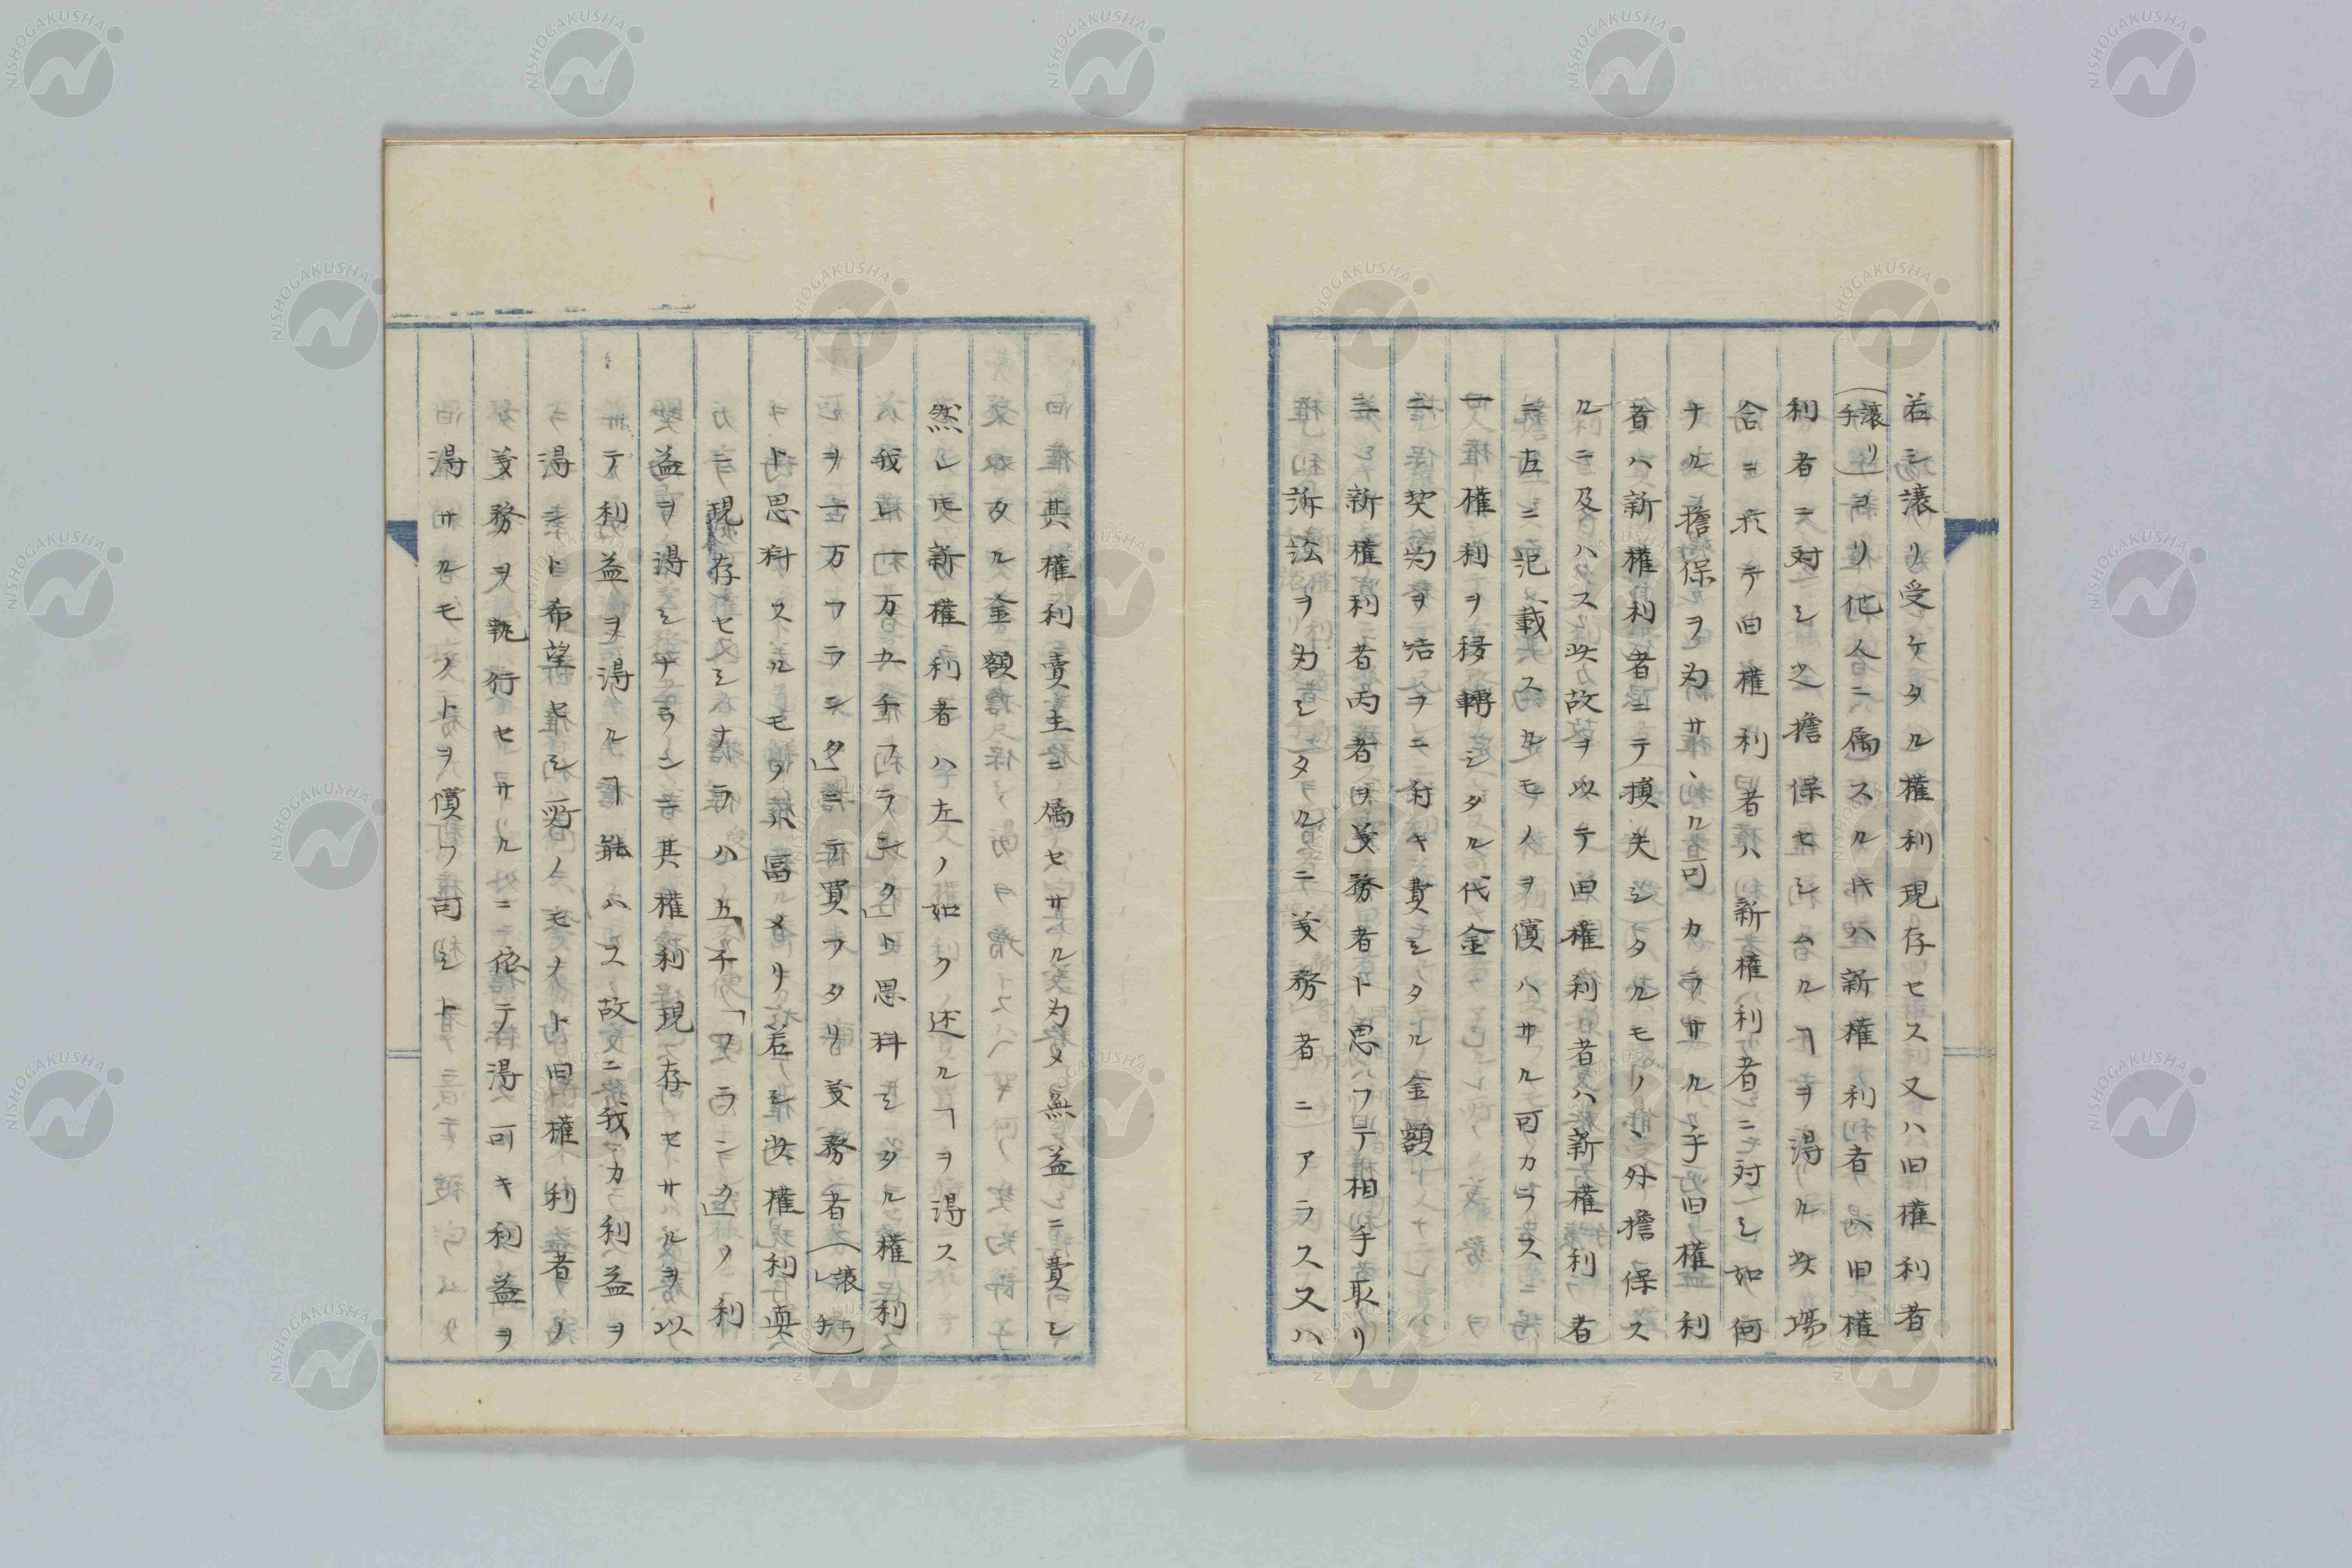 若シ譲リ受ケタル権利現存セス又ハ旧権利者
(譲リ手)ヨリ他人ニ属スル片ハ新権利者ハ旧権
利者ニ対シ之担保セシムルヿヲ得ル此場
合ニ於テ旧権利者ハ新権利者ニ対シ如何
ナル擔保ヲ為サヽル可カラサルヤ旧権利
者ハ新権利者ニテ損失シタルモノヽ外擔保ス
ルニ及ハス此故ヲ以テ旧権利者ハ新権利者
ニ左ニ記載スルモノヲ償ハサル可カラス
一権利ヲ移轉シタル代金
二契約ヲ結フニ付キ費シタル金額
三新権利者丙者ヲ義務者ト思フテ相手取リ
訴訟ヲ為シタルニ義務者ニアラス又ハ
其権利賣主ニ属セサル為メ無益ニ費シ
タル金額
然レ𪜈新権利者ハ左ノ如ク述ルヿヲ得ス
我レ一万九千フランクト思料シタル権利
ヲ一万フランクニテ買フタリ義務者(譲ラレ手)
ト思料スルモノ業富メリ若シ此権利眞
ニ現存セシナラハ五千「フランク」ノ利
益ヲ得シナラン其権利現存セサルヲ以
テ利益ヲ得ル能ハス故ニ我カ利益ヲ
得ント希望セシ所ノモノト旧権利者ノ
義務ヲ執行セサルニ依テ得可キ利益ヲ
得サルモノトヲ償フ可シト